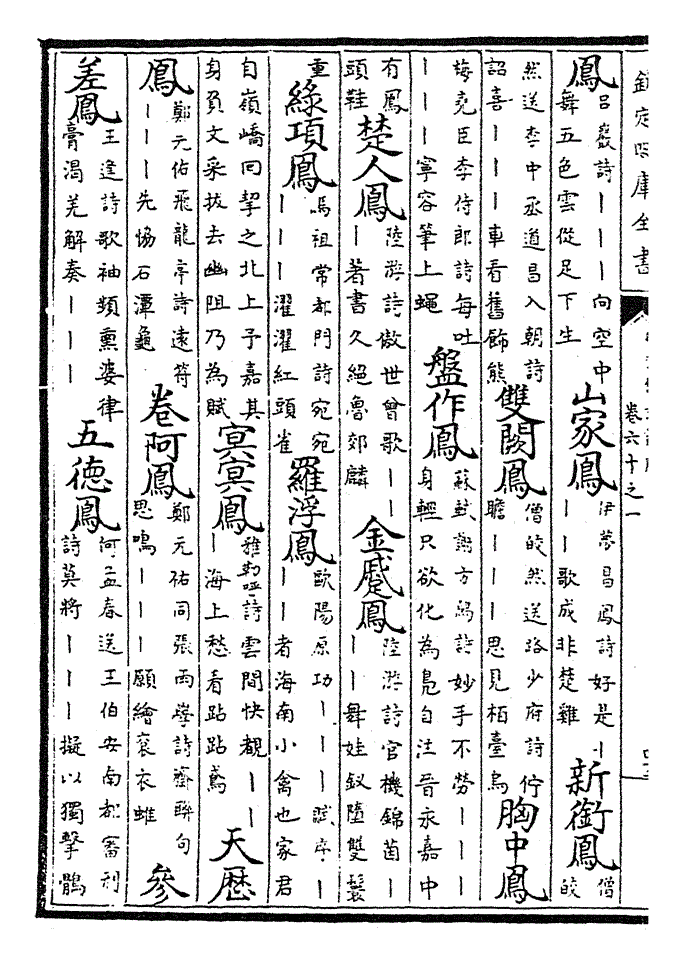 欽定四庫全書
卷六十之一
鳳
呂巖詩｜｜｜向空中
舞五色雲從足下生
山家鳳
伊夢昌鳳詩好是｜
｜｜歌成非楚雞
新銜鳳
僧
皎
然送李中丞道昌入朝詩
詔喜｜｜｜車看舊飾熊
雙闕鳳
僧皎然送路少府詩佇
瞻｜｜｜思見栢臺烏
胸中鳳
梅堯臣李侍郎詩每吐
｜｜｜寧容筆上蠅
盤作鳳
蘇軾謝方詩妙手不勞｜｜｜
身輕只欲化為鳧自注晉永嘉中
有鳳
頭鞋
楚人鳳
陸游詩傲世曾歌｜｜
｜著書久絕魯郊麟
金蹙鳳
陸游詩官機錦茵｜
｜｜舞娃釵墮雙鬟
重
綠項鳳
馬祖常都門詩宛宛
｜｜｜濯濯紅頭雀
羅浮鳳
歐陽原功｜｜｜賦序｜
｜｜者海南小禽也家君
自嶺嶠回挈之北上予嘉其
身負文采拔去幽阻乃為賦
冥冥鳳
雅勒詩雲間快覩｜｜
｜海上愁看跕跕鳶
天厯
鳳
鄭元佑飛龍亭詩遠符
｜｜｜先協石潭龜
卷阿鳳
鄭元祐同張雨學詩齋聯句
思鳴｜｜｜願繪衮衣蜼
參
差鳳
王逢詩歌袖頻熏婆律
膏渴羌解奏｜｜｜
五德鳳
何孟春送王伯安南都審刑
詩莫將｜｜｜擬以獨擊鶻